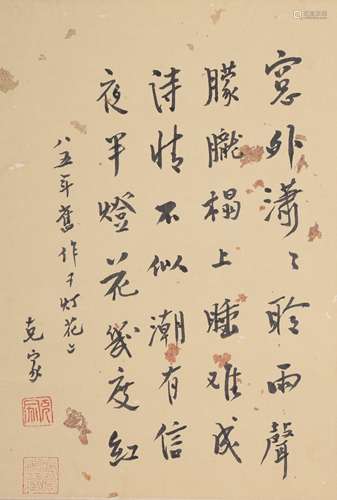 窓外瀟〻聆雨聲
朦朧榻上睡难成
诗情不似潮有信
夜半燈花㡬度红
八五年舊作干灯花上
克家